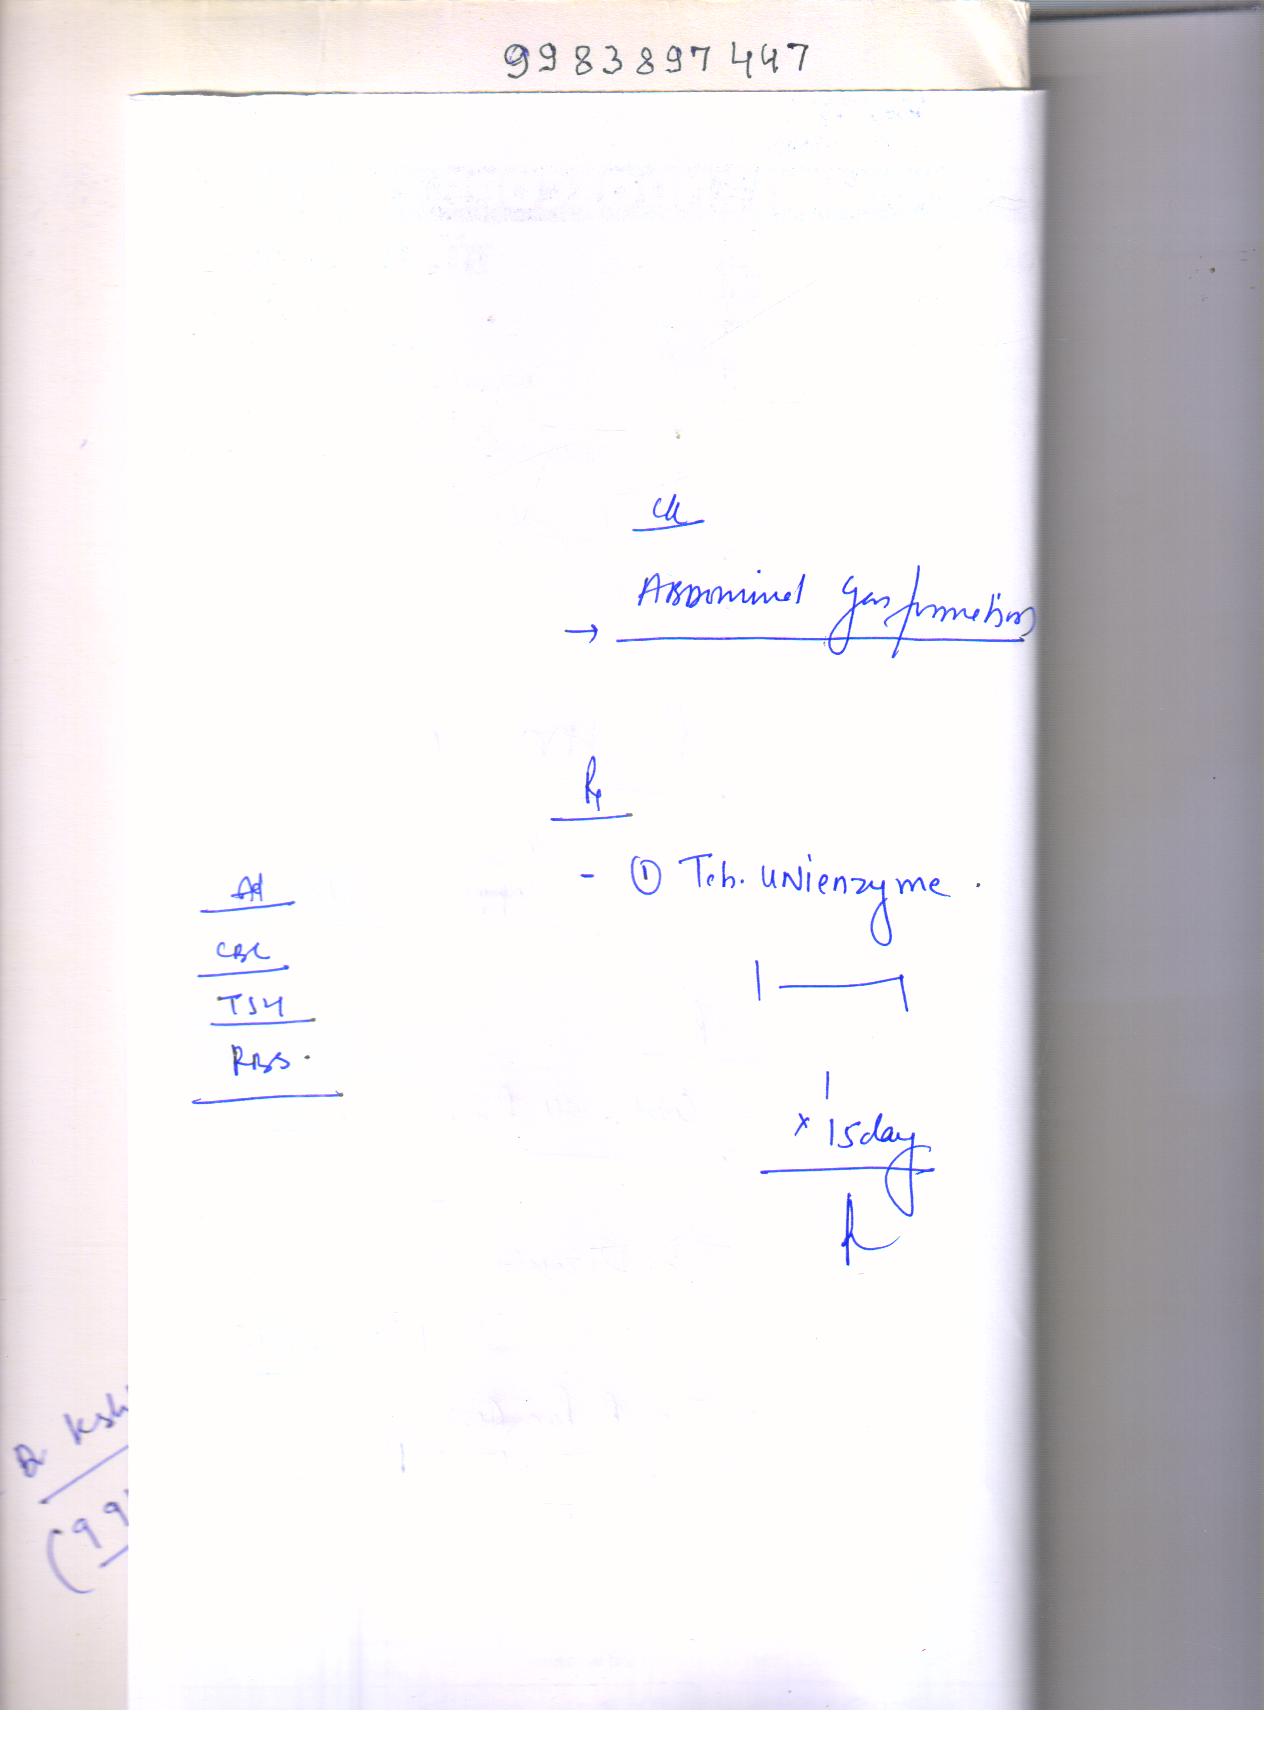 9983897447
C/o
Abdominal gas formation
→
Rx
- ① Tab. UNienzyme.
1 — 1
1
x 15day
Ad
CBC
TSH
RBS.
Dr Ksh
(99